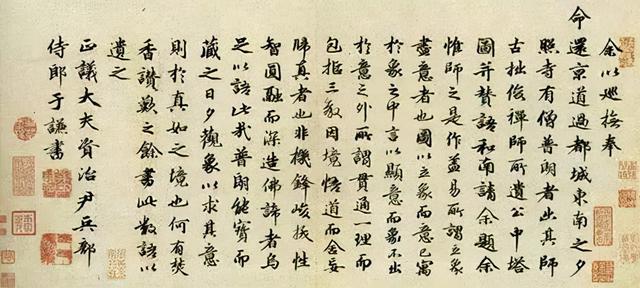 余以巡撫奉
命還京道過都城東南之夕
照寺有僧普朗者出其師
古拙俊禪師所遺公中塔
圖并贊語和南請余題余
惟師之是作蓋易所謂立象
盡意者也圖以立象而意已寓
於象之中言以顯意而象不出
於意之外所謂貫通一理而
包括三象因境悟道而舍妄
歸真者也非機鋒峻拔性
智圓融而深造佛諦者烏
足以語此哉普朗能寶而
藏之日夕觀象以求其意
則於真如之境也何有焚
香讚歎之餘書此數語以
遺之
正議大夫資治尹兵部
侍郎于謙書